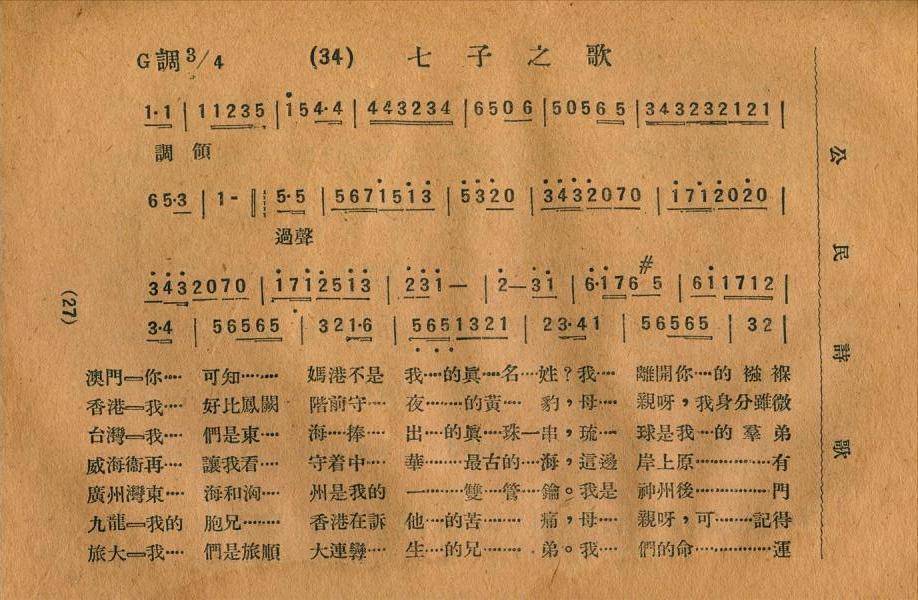 G調3/4 (34) 七子之歌
1·1 | 11235 | i54·4 | 443234 | 6506 | 50565 | 343232121 |
調領
65·3 | 1- || 5·5 | 5671513 | 5320 | 3432070 | 1712020 |
過聲
3432070 | 1712513 | 231— | 2—31 | 6·176#5 | 611712 |
3·4 | 56565 | 321·6 | 5651321 | 23·41 | 56565 | 32 |
澳門═你···· 可知······· 媽港不是 我····的眞····名···姓?我···· 離開你····的 襁 褓
香港═我···· 好比鳳闕 階前守···· 夜········的黃···· 豹,母···· 親呀,我身分雖微
台灣═我···· 們是東···· 海···捧···· 出····的眞···珠一串,琉··· 球是我···的 羣 弟
威海衞再···· 讓我看···· 守着中···· 華········最古的···海,這邊 岸上原··············有
廣州灣東···· 海和洶···· 州是我的 一········雙···管···鑰。我是 神州後··············門
九龍═我的 胞兄········ 香港在訴 他····的苦······· 痛,母···· 親呀,可·····記得
旅大═我···· 們是旅順 大連孿···· 生····的兄········弟。我···· 們的命··············運
公民詩歌
(27)